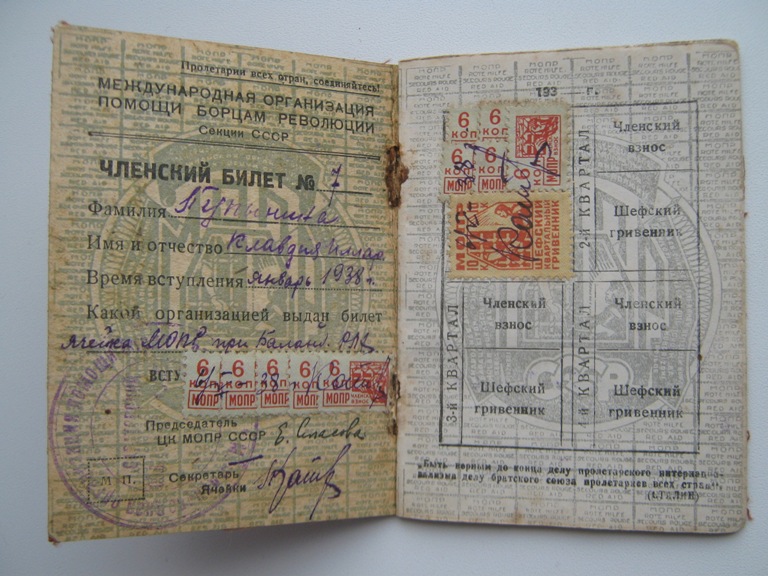 Пролетарии всех стран, соединяйтесь!
МЕЖДУНАРОДНАЯ ОРГАНИЗАЦИЯ
ПОМОЩИ БОРЦАМ РЕВОЛЮЦИИ
Секции СССР
ЧЛЕНСКИЙ БИЛЕТ № 7
Фамилия
Имя и отчество Клавдия
Время вступления январь 1938 г.
Какой организацией выдан билет
ячейка МОПР при Баланд.
ВСТУ
6 КОП 6 КОП 6 КОП 6 КОП 6
МОПР МОПР МОПР МОПР
Председатель
ЦК МОПР СССР Е. Стасова
Секретарь
Ячейки
М П.
МОПР
ROTE HILFE
SECOURS ROUGE
RED AID
193 г.
6 КОП 6 КОП
6 6 6 КОП
МОПР МОПР МОПР
МОПР
10 КОП
ШЕФСКИЙ
КВАРТАЛЬНЫЙ
ГРИВЕННИК
2-й КВАРТАЛ
Членский
взнос
Шефский
гривенник
3-й КВАРТАЛ
Членский
взнос
Шефский
гривенник
4-й КВАРТАЛ
Членский
взнос
Шефский
гривенник
СССР
„Быть верным до конца делу пролетарского интернационализма делу братского союза пролетариев всех стран“.
(СТАЛИН)